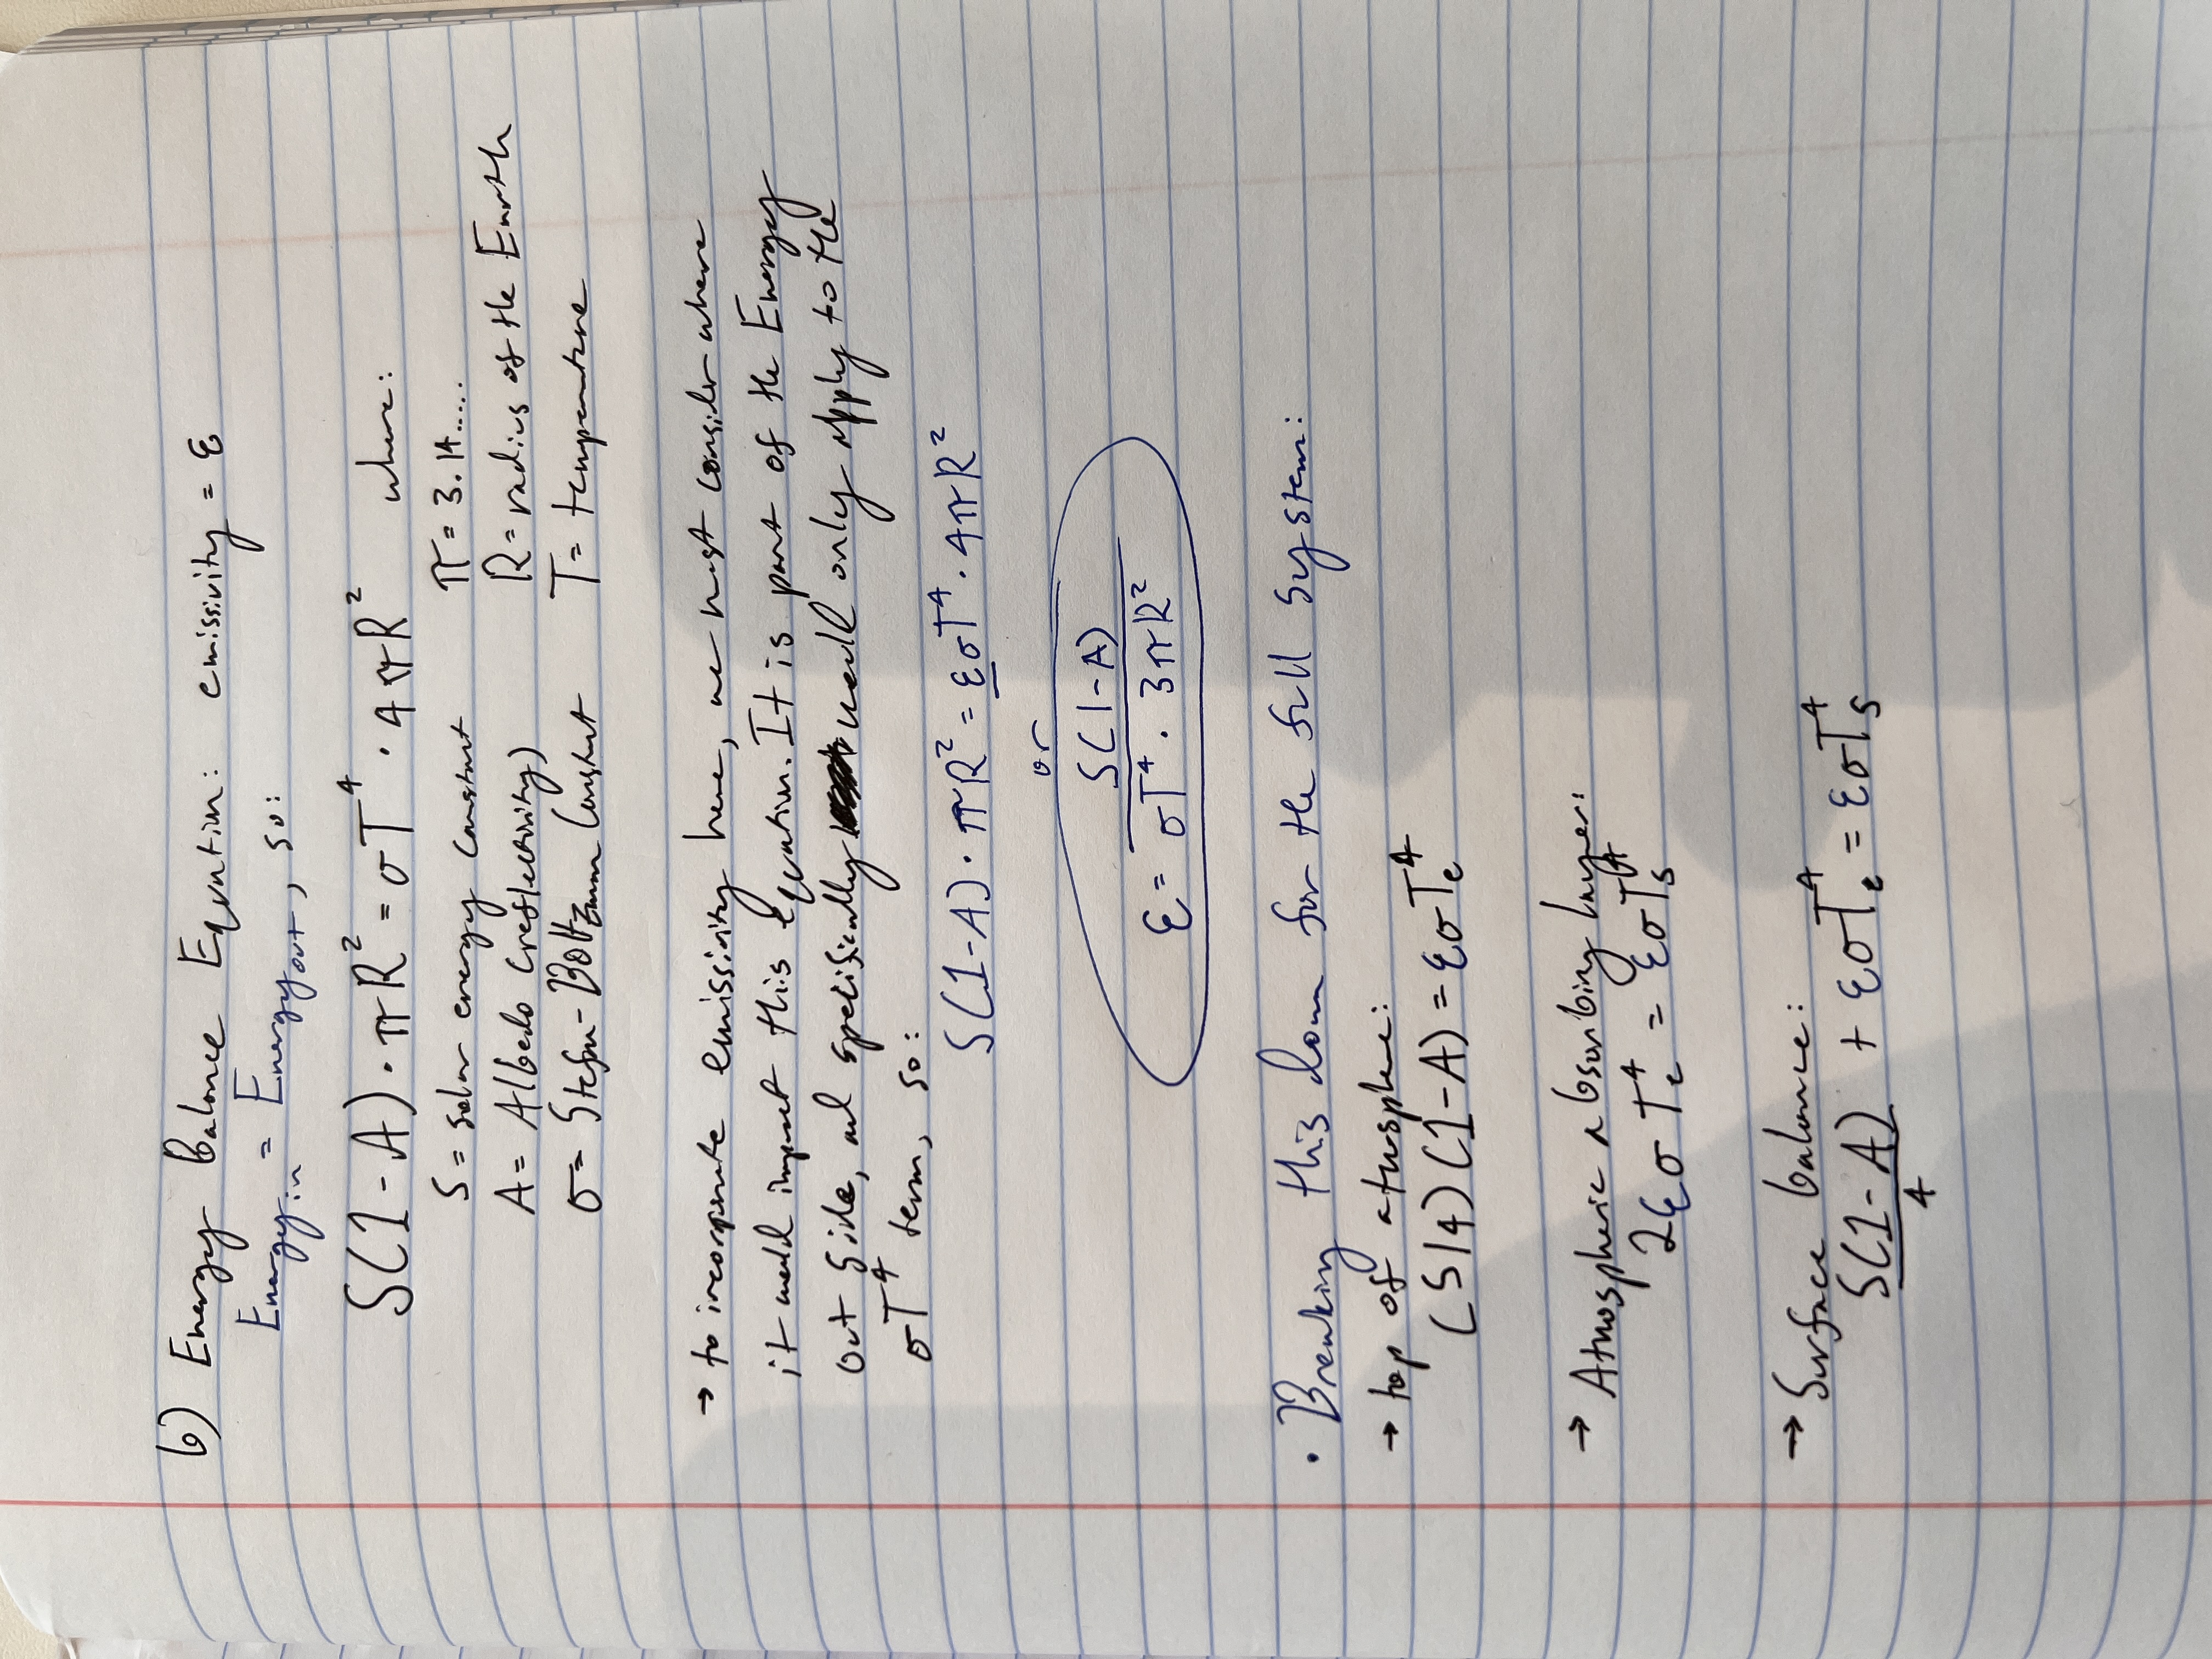 b) Energy Balance Equation: emissivity = ε
Energy_in = Energy_out, so:
S(1-A)·πR² = σT⁴ · 4πR² where:
S = solar energy constant π = 3.14.....
A = Albedo (reflectivity) R = radius of the Earth
σ = Stefan-Boltzmann Constant T = temperature
→ to incorporate emissivity here, we must consider where
it would impact this equation. It is part of the Energy
out side, and specifically would only apply to the
σT⁴ term, so:
S(1-A)· πR² = εσT⁴ · 4πR²
or
ε = S(1-A) / σT⁴ · 3πR²
• Breaking this down for the full system:
→ top of atmosphere:
(S/4)(1-A) = εσTₑ⁴
→ Atmospheric absorbing layer:
2εσTₑ⁴ = εσTₛ⁴
→ Surface balance:
S(1-A)/4 + εσTₑ⁴ = εσTₛ⁴